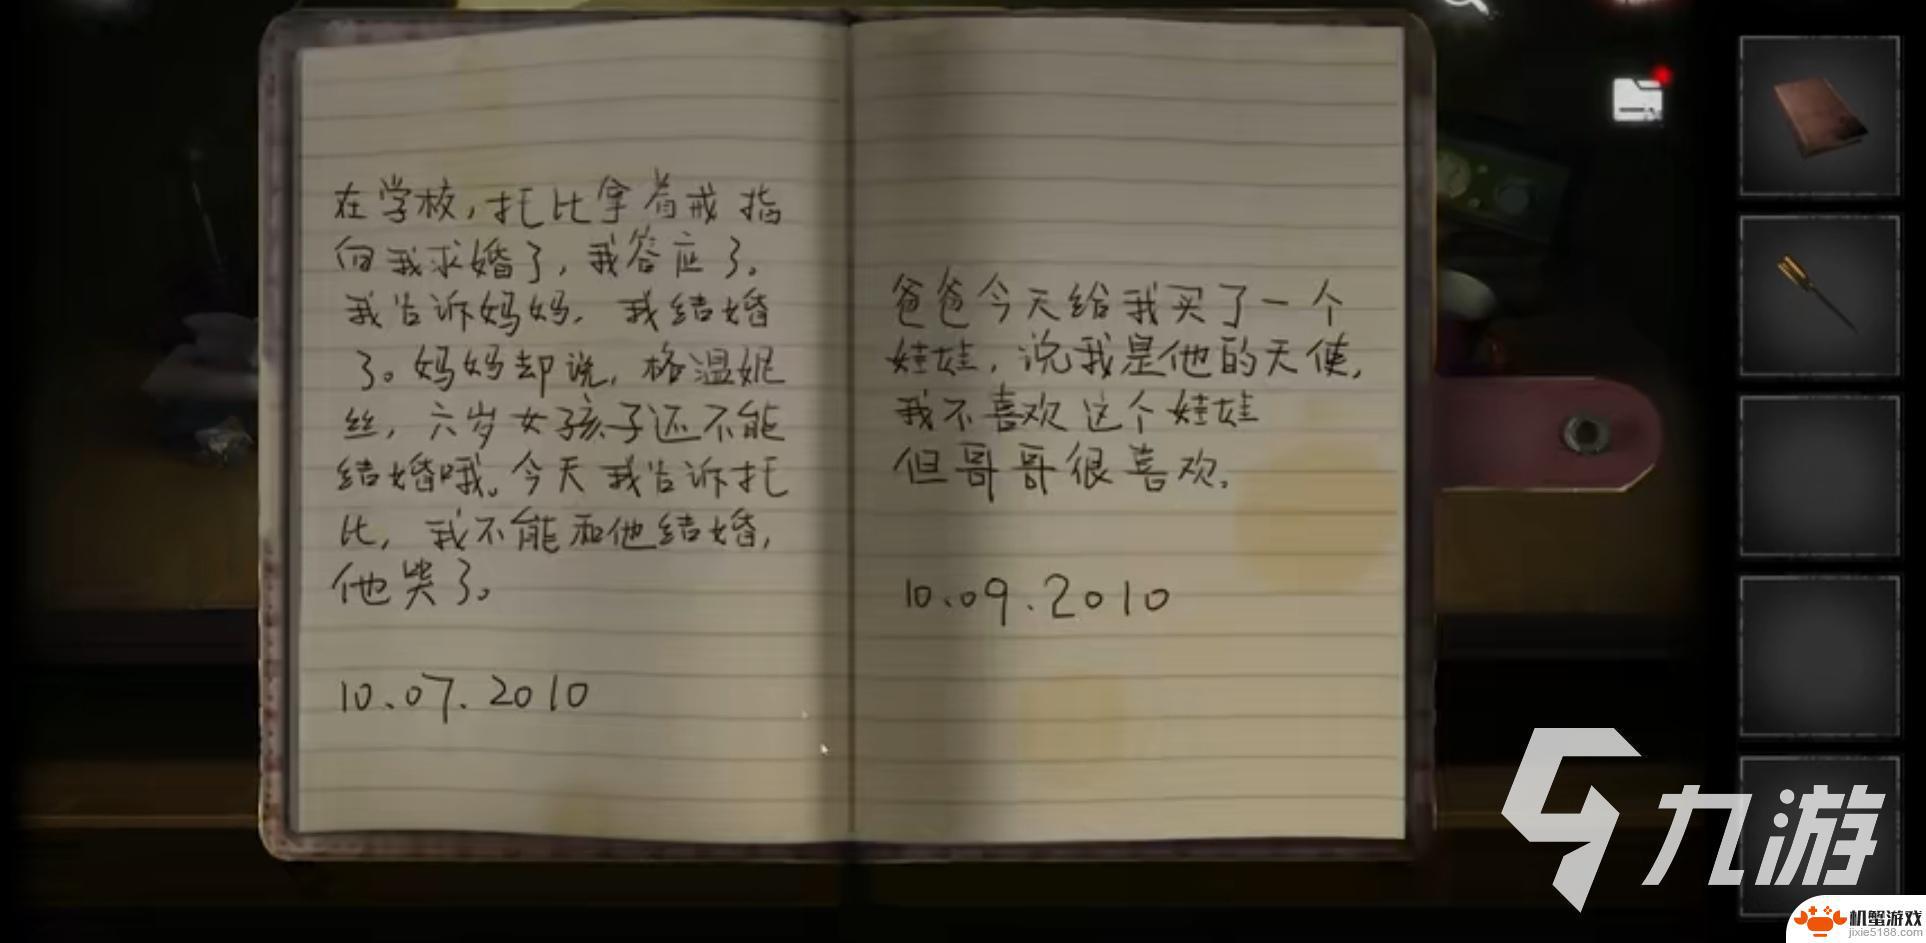 在学校,托比拿着戒指
向我求婚了,我答应了。
我告诉妈妈,我结婚
了。妈妈却说,格温妮
丝,六岁女孩子还不能
结婚哦。今天我告诉托
比,我不能和他结婚,
他哭了。
10.07.2010
爸爸今天给我买了一个
娃娃,说我是他的天使,
我不喜欢这个娃娃
但哥哥很喜欢。
10.09.2010
九游
机蟹游戏
jixie5188.com